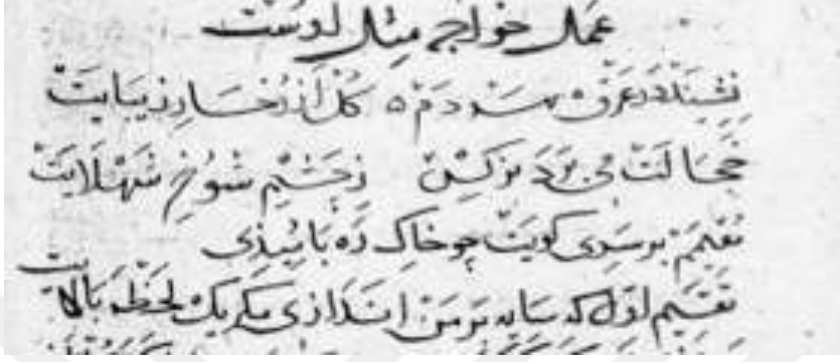 عمل خواجه مثل اوست
نشیند در عرق دم کل از رخسار زیبایت
خجالت می برد نرکس زچشم شوخ شهلایت
مقیم بر سر کویت چو خاک ره بامیدی
تقسیم اول که سایه بر من اندازی مکر یک لحظه بالایت